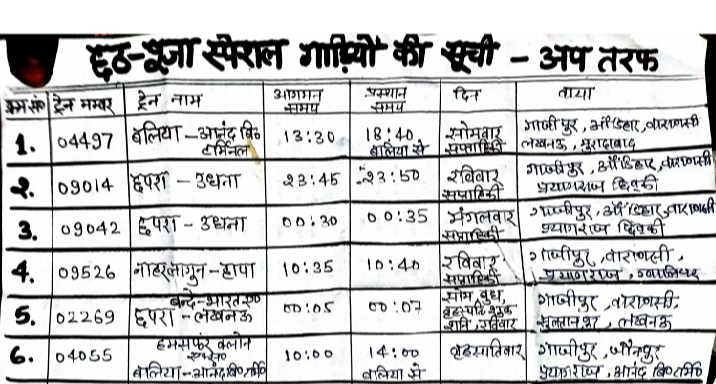 छठ-पूजा स्पेशल गाड़ियों की सूची - अप तरफ
क्रम सं० ट्रेन नम्बर ट्रेन नाम आगमन समय प्रस्थान समय दिन वाया
1. 04497 बलिया-आनंद वि० टर्मिनल 13:30 18:40 बलिया से सोमवार साप्ताहिकी गाजीपुर, औंडिहार, वाराणसी लखनऊ, मुरादाबाद
2. 09014 छपरा - उधना 23:45 23:50 रविवार साप्ताहिकी गाजीपुर, औंडिहार, वाराणसी प्रयागराज छिवकी
3. 09042 छपरा - उधना 00:30 00:35 मंगलवार साप्ताहिकी गाजीपुर, औंडिहार, वाराणसी प्रयागराज छिवकी
4. 09526 नाहरलागुन-हापा 10:35 10:40 रविवार साप्ताहिकी गाजीपुर, वाराणसी, प्रयागराज, ग्वालियर
5. 02269 वन्दे-भारत एक्स० छपरा - लखनऊ 00:05 00:07 सोम, बुध, बृहस्पति शुक्र शनि, रविवार गाजीपुर, वाराणसी, सुलतानपुर, लखनऊ
6. 04055 हमसफर क्लोन बलिया-आनंद वि० टर्मि० 10:00 14:00 बलिया से बृहस्पतिवार गाजीपुर, जौनपुर प्रयागराज, आनंद वि० टर्मि०